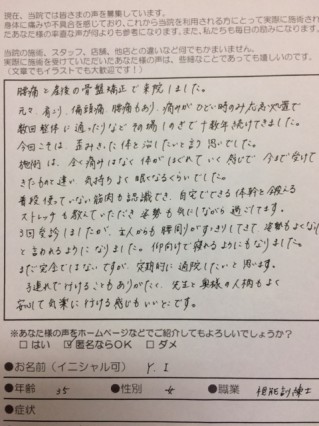 現在、当院では皆さまの声を募集しています。
身体に痛みや不具合を感じており、これから当院を利用される方にとって実際に施術され
たあなた様の率直な声が何よりも参考になります。また、私たちも毎日の励みになります。
当院の施術、スタッフ、店舗、他店との違いなど何でもかまいません。
実際に施術を受けていただいたあなた様の声は、些細なことであっても嬉しいのです。
(文章でもイラストでも大歓迎です!)
腰痛と産後の骨盤矯正で来院しました。
元々、肩こり、偏頭痛、腰痛もあり、痛みがひどい時のみ
数回整体に通ったりなど その場しのぎで十数年続けてきました。
今回こそは、歪みきった体を治したいと言う思いでした。
施術は、全く痛みはなく体がほぐれていく感じで 今まで受けて
きたものと違い、気持ちよく眠くなるくらいでした。
普段使っていない筋肉も認識でき、自宅でできる体幹を鍛える
ストレッチも教えていただき 姿勢も気にしながら過ごしてます。
5回受診しましたが、主人からも腰周りがすっきりしてきて、姿勢もよくなった
と言われるようになりました。仰向けで寝れるようにもなりました。
まだ完全ではないですが、定期的に通院したいと思います。
子連れで行けることもありがたく、先生と奥様の人柄もよく
安心して気楽に行ける感じもいいとこです。
※あなた様の声をホームページなどでご紹介してもよろしいでしょうか?
□ はい ☑ 匿名ならOK □ ダメ
●お名前(イニシャル可) Y.I
●年齢 35 ●性別 女 ●職業 視能訓練士
●症状